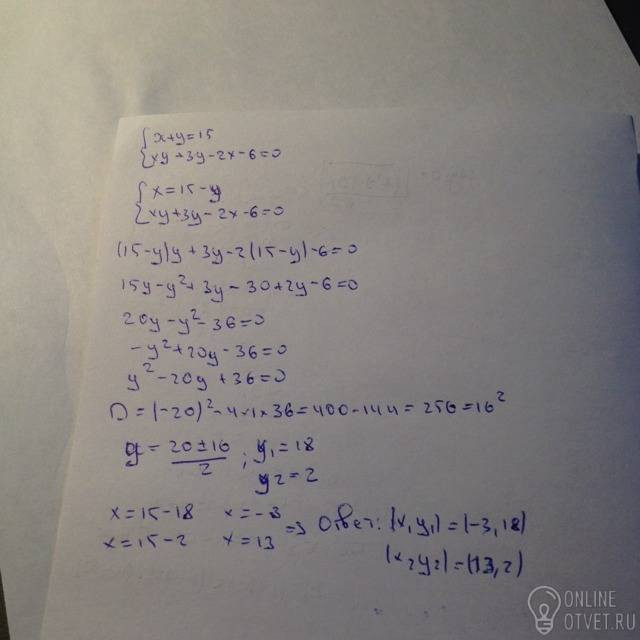 x+y=15
xy+3y-2x-6=0
x=15-y
xy+3y-2x-6=0
(15-y)y+3y-2(15-y)-6=0
15y-y²+3y-30+2y-6=0
20y-y²-36=0
-y²+20y-36=0
y²-20y+36=0
D=(-20)²-4×1×36=400-144=256=16²
y=20±16/2; y₁=18
y₂=2
x=15-18 x=-3
x=15-2 x=13 => Ответ: (x,y₁)=(-3,18)
(x₂y₂)=(13,2)
ONLINE
OTVET.RU